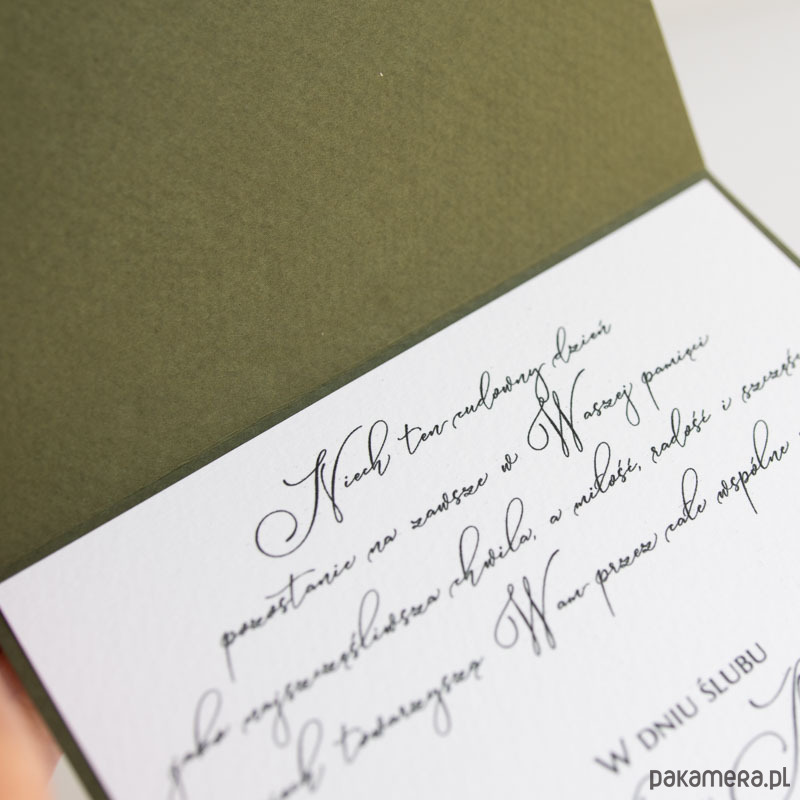 Niech ten cudowny dzień
pozostanie na zawsze w Waszej pamięci
jako najszczęśliwsza chwila, a miłość, radość i szczęśc
niech towarzyszą Wam przez całe wspólne
W DNIU ŚLUBU
pakamera.pl